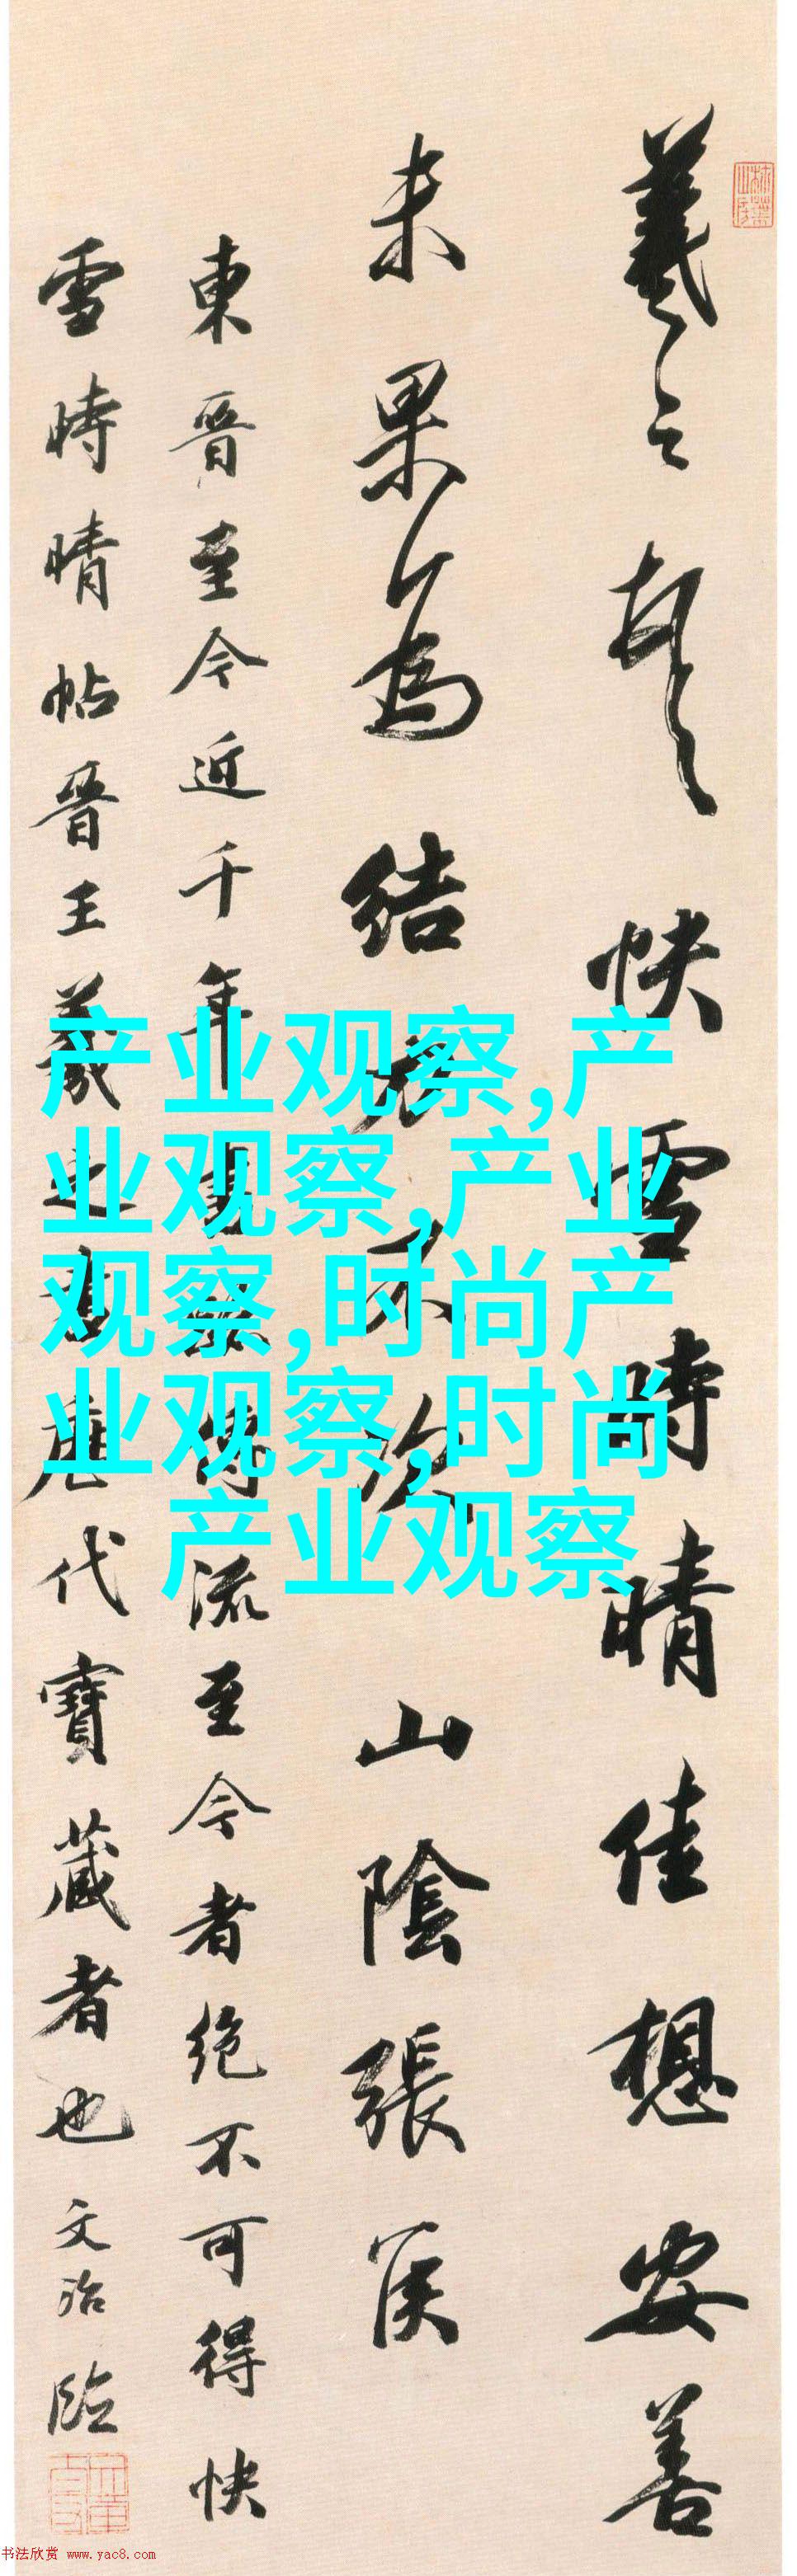 羲之頓首快雪時晴佳想安善
未果為結力不次山陰張侯
東晉至今近千年書迹傳流至今者絕不可得快
雪時晴帖晉王羲之書歷代寶藏者也文治臨
产业观察,产
业观察,产业
观察,时尚产
业观察,时尚
产业观察
书法欣赏 www.yac8.com